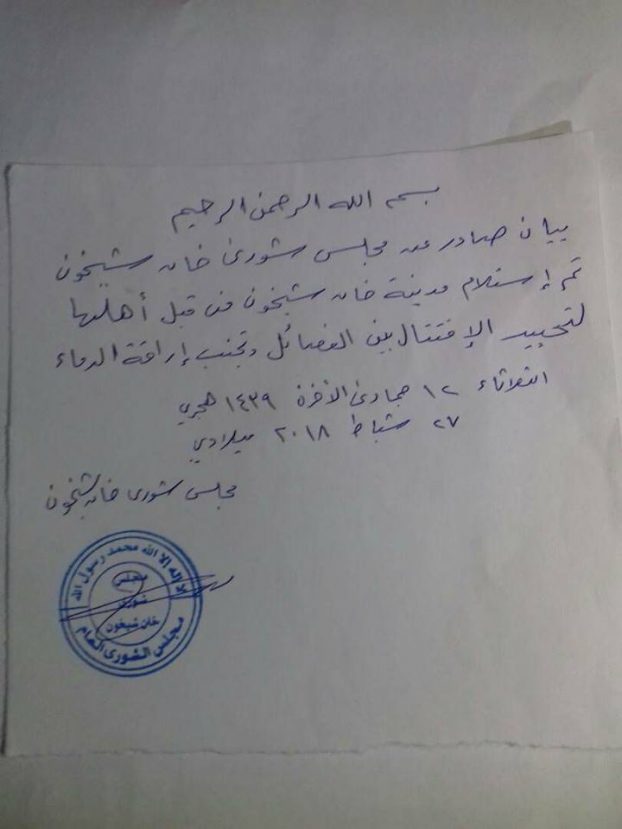 بسم الله الرحمن الرحيم
بيان صادر عن مجلس شورى خان شيخون
تم إستلام مدينة خان شيخون من قبل أهلها
لتحييد الإقتتال بين الفصائل وتجنب إراقة الدماء
الثلاثاء ١٢ جمادى الآخرة ١٤٣٩ هجري
٢٧ شباط ٢٠١٨ ميلادي
مجلس شورى خان شيخون
لا إله إلا الله محمد رسول الله
مجلس
شورى
خان شيخون
مجلس الشورى العام